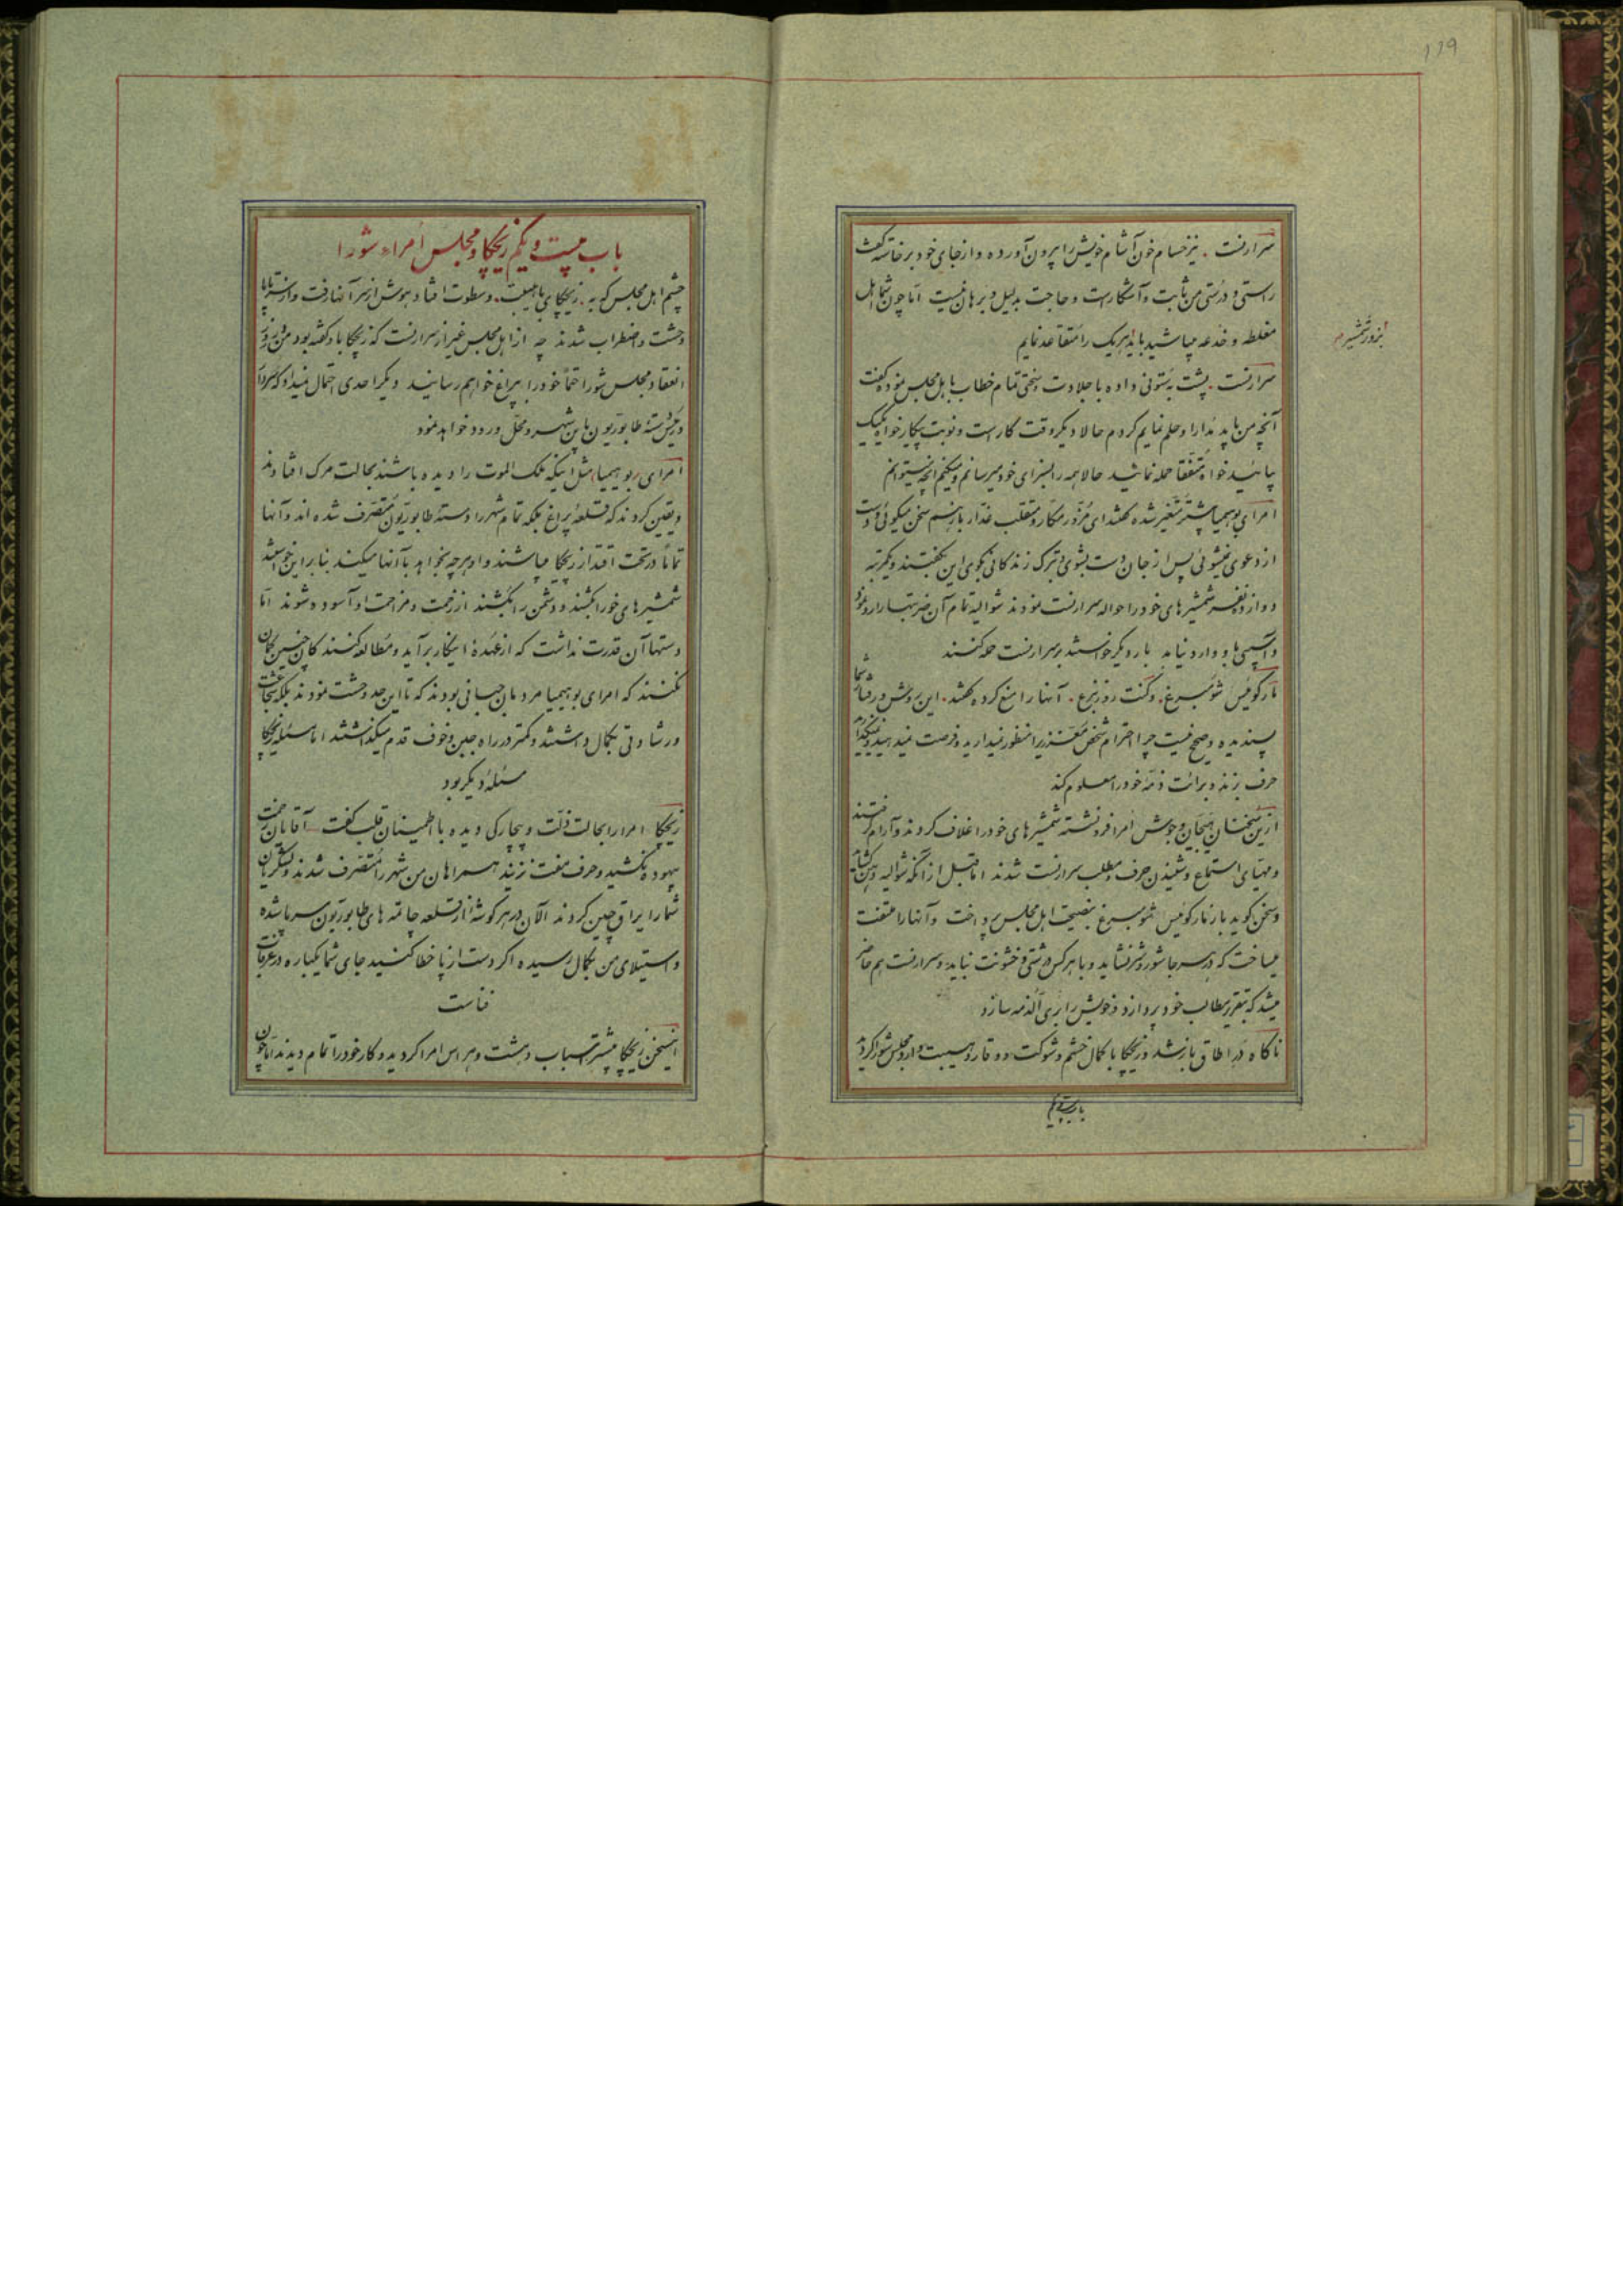 ۱۲۹
سرارنست . نیز حسام خون آشام خویش را بیرون آورده و از جای خود برخاسته گفت
راستی و درستی من ثابت و آشکار است و حاجت بدلیل و برهان نیست اما چون شما اهل
مغلطه و خدعه میباشید باید هر یک را متقاعد نمایم
بزور شمشیرم
سرارنست . پشت بستونی داده با جلادت و سختی تمام خطاب باهل مجلس نموده گفت
آنچه من باید مدارا و حلم نمایم کردم حالا دیگر وقت کار است و نوبت پیکار خواه یک یک
بیائید خواه متفقا حمله نمائید حالا همه را بسزای خود میرسانم و میکنم آنچه میتوانم
امرای بوهیمیا بیشتر متغیر شده گفتند ای مزور مکار و متقلب غدار باز هم سخن میگوئی و دست
از دعوی نمیشوئی پس از جان دست بشوی و ترک زندگانی بگوی این بگفتند و یکمرتبه
دوازده نفر شمشیرهای خود را حواله سرارنست نمودند شوالیه تمام آن ضربتها را رد نمود
و آسیبی باو وارد نیامد بار دیگر خواستند بر سرارنست حمله کنند
مارکوئیس شومبرغ . و کنت روزنبرغ . آنها را منع کرده گفتند . این روش و رفتار شما
پسندیده و صحیح نیست چرا احترام شخص معززی را منظور نمیدارید و فرصت نمیدهید و نمیگذارید
حرف بزند و برائت ذمه خود را معلوم کند
ازین سخنان هیجان و جوش امرا فرو نشسته شمشیرهای خود را غلاف کردند و آرام گرفتند
و مهیای استماع و شنیدن حرف و مطلب سرارنست شدند اما قبل از آنکه شوالیه دهن گشاید
و سخن گوید باز مارکوئیس شومبرغ بنصیحت اهل مجلس پرداخت و آنها را ملتفت
میساخت که در هر جا شور و شر نشاید و با هر کس درشتی و خشونت نباید و سرارنست هم حاضر
میشد که بتقریر مطالب خود پردازد و خویش را بری الذمه سازد
ناگاه در اطاق باز شد و زیچکا با کمال خشم و شوکت و وقار و هیبت وارد مجلس شورا گردید
باب بیست و یکم
باب بیست و یکم زیچکا و مجلس امراء شورا
چشم اهل مجلس که به . زیچکای با هیبت . و سطوت افتاد هوش از سر آنها رفت و از سر تا پا
وحشت و اضطراب شدند چه از اهل مجلس غیر از سرارنست که زیچکا باو گفته بود من روز
انعقاد مجلس شورا حتماً خود را بپراغ خواهم رسانید دیگر احدی احتمال نمیداد که سردار
و رئیس دسته طابوریون باین شهر و محل ورود خواهد نمود
امرای بوهیمیا مثل اینکه ملک الموت را دیده باشند بحالت مرگ افتادند
و یقین کردند که قلعه پراغ بلکه تمام شهر را دسته طابوریون متصرف شده اند و آنها
تماماً در تحت اقتدار زیچکا میباشند و او هر چه بخواهد با آنها میکند بنا بر این خواستند
شمشیرهای خود را بکشند و دشمن را بکشند از زحمت و مزاحمت او آسوده شوند اما
دستها آن قدرت نداشت که از عهده اینکار بر آید و مطالعه کنندگان چنین گمان
نکنند که امرای بوهیمیا مردمان جبانی بودند که تا این حد وحشت نمودند بلکه شجاعت
و رشادتی بکمال داشتند و کمتر در راه جبن و خوف قدم میگذاشتند اما مسئله زیچکا
مسئله دیگر بود
زیچکا امرا را بحالت ذلت و بیچارگی دیده با اطمینان قلب گفت آقایان زحمت
بیهوده نکشید و حرف مفت نزنید همراهان من شهر را متصرف شدند و لشکریان
شما را یراق چین کردند الآن در هر گوشه از قلعه چاتمه های طابوریون سر پا شده
و استیلای من بکمال رسیده اگر دست از پا خطا کنید جای شما یکباره در غرقاب
فناست
این سخن زیچکا بیشتر اسباب دهشت و هراس امرا گردید و کار خود را تمام دیدند اما چون